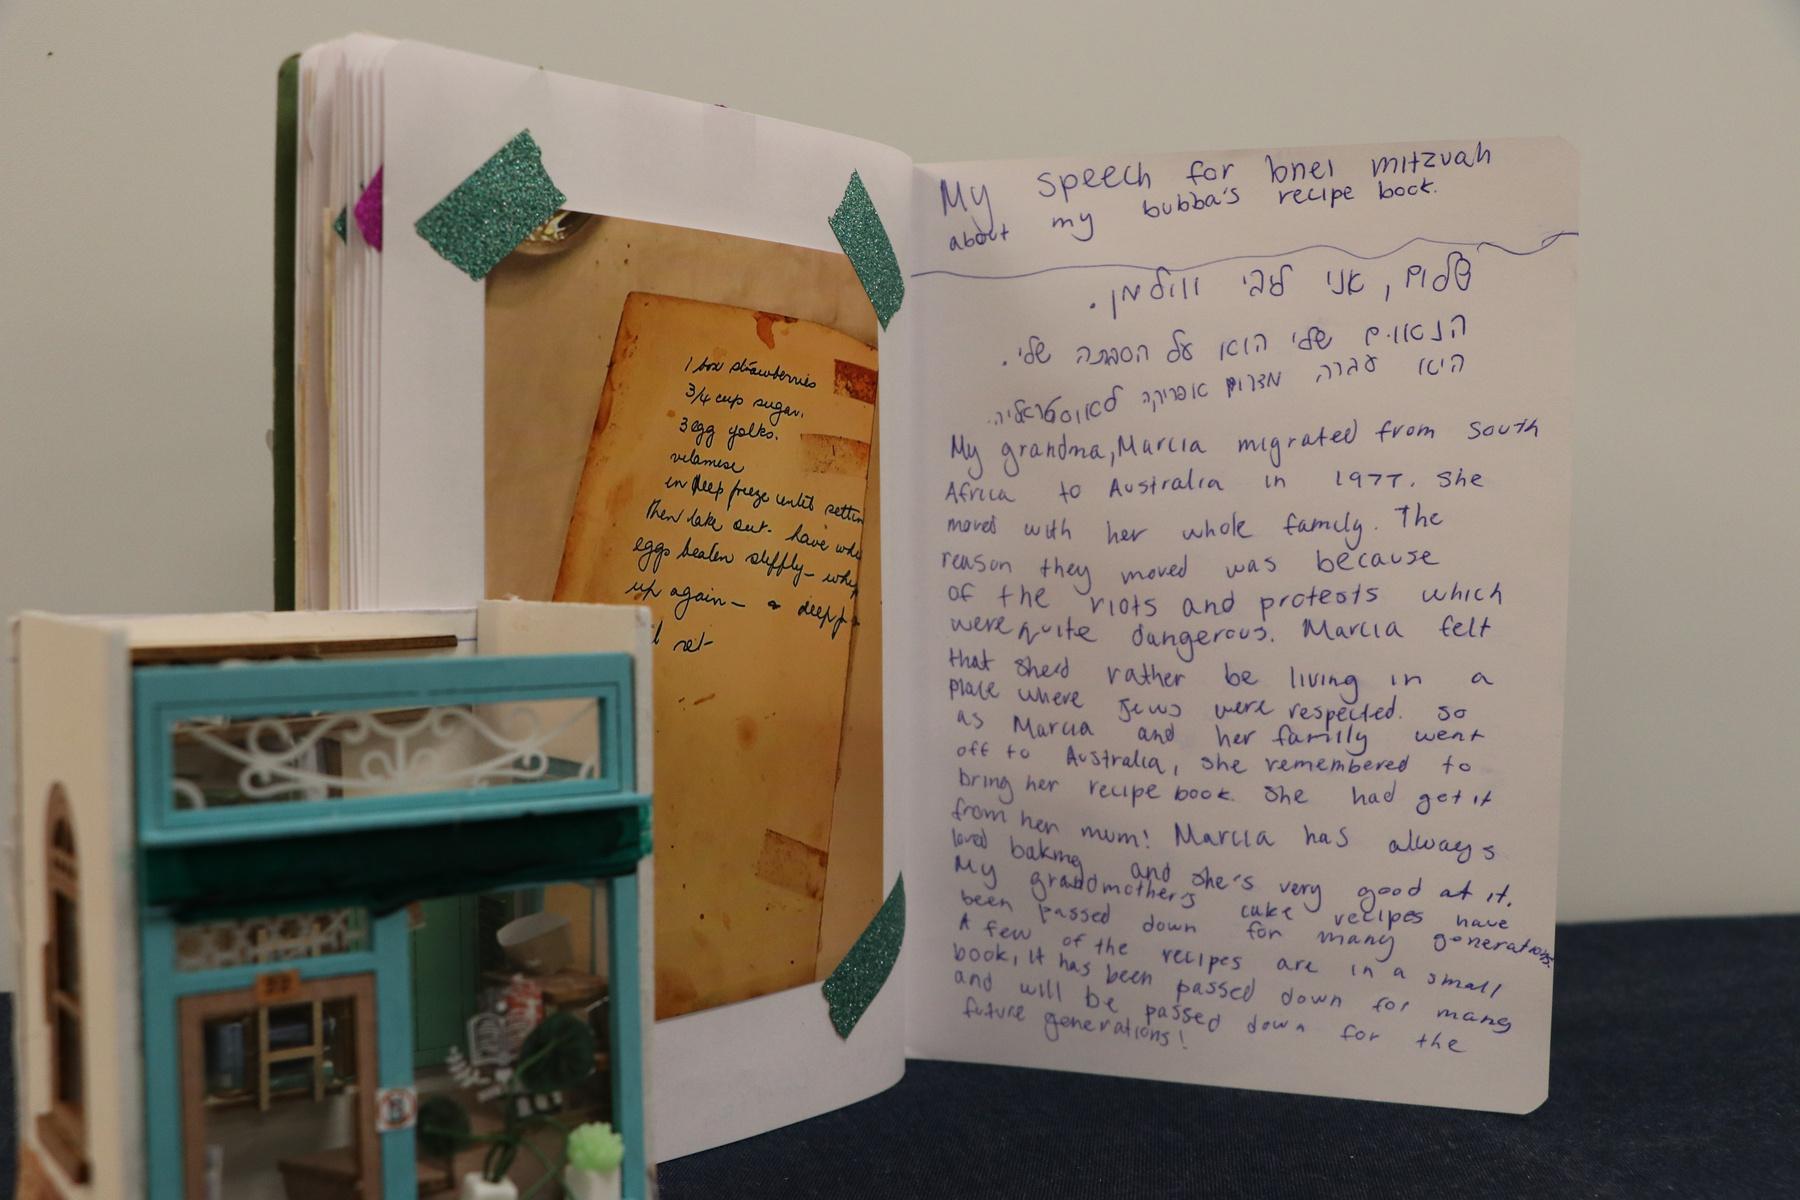 1 box strawberries
3/4 cup sugar.
3 egg yolks.
in deep freeze until settin
Then take out. have whi
eggs beaten stiffly - whip
up again - deep f
l set
My speech for bnei mitzvah
about my bubba's recipe book.
שלום, אני ליבי וולמן.
הנאום שלי הוא על הסבתה שלי.
היא עברה מדרום אפריקה לאוסטרליה.
My grandma, Marcia migrated from South
Africa to Australia in 1977. She
moved with her whole family. The
reason they moved was because
of the riots and protests which
were quite dangerous. Marcia felt
that she'd rather be living in a
place where Jews were respected. So
as Marcia and her family went
off to Australia, she remembered to
bring her recipe book. She had got it
from her mum! Marcia has always
loved baking and she's very good at it.
My grandmother's cake recipes have
been passed down for many generations.
A few of the recipes are in a small
book, it has been passed down for many
and will be passed down for the
future generations!
22